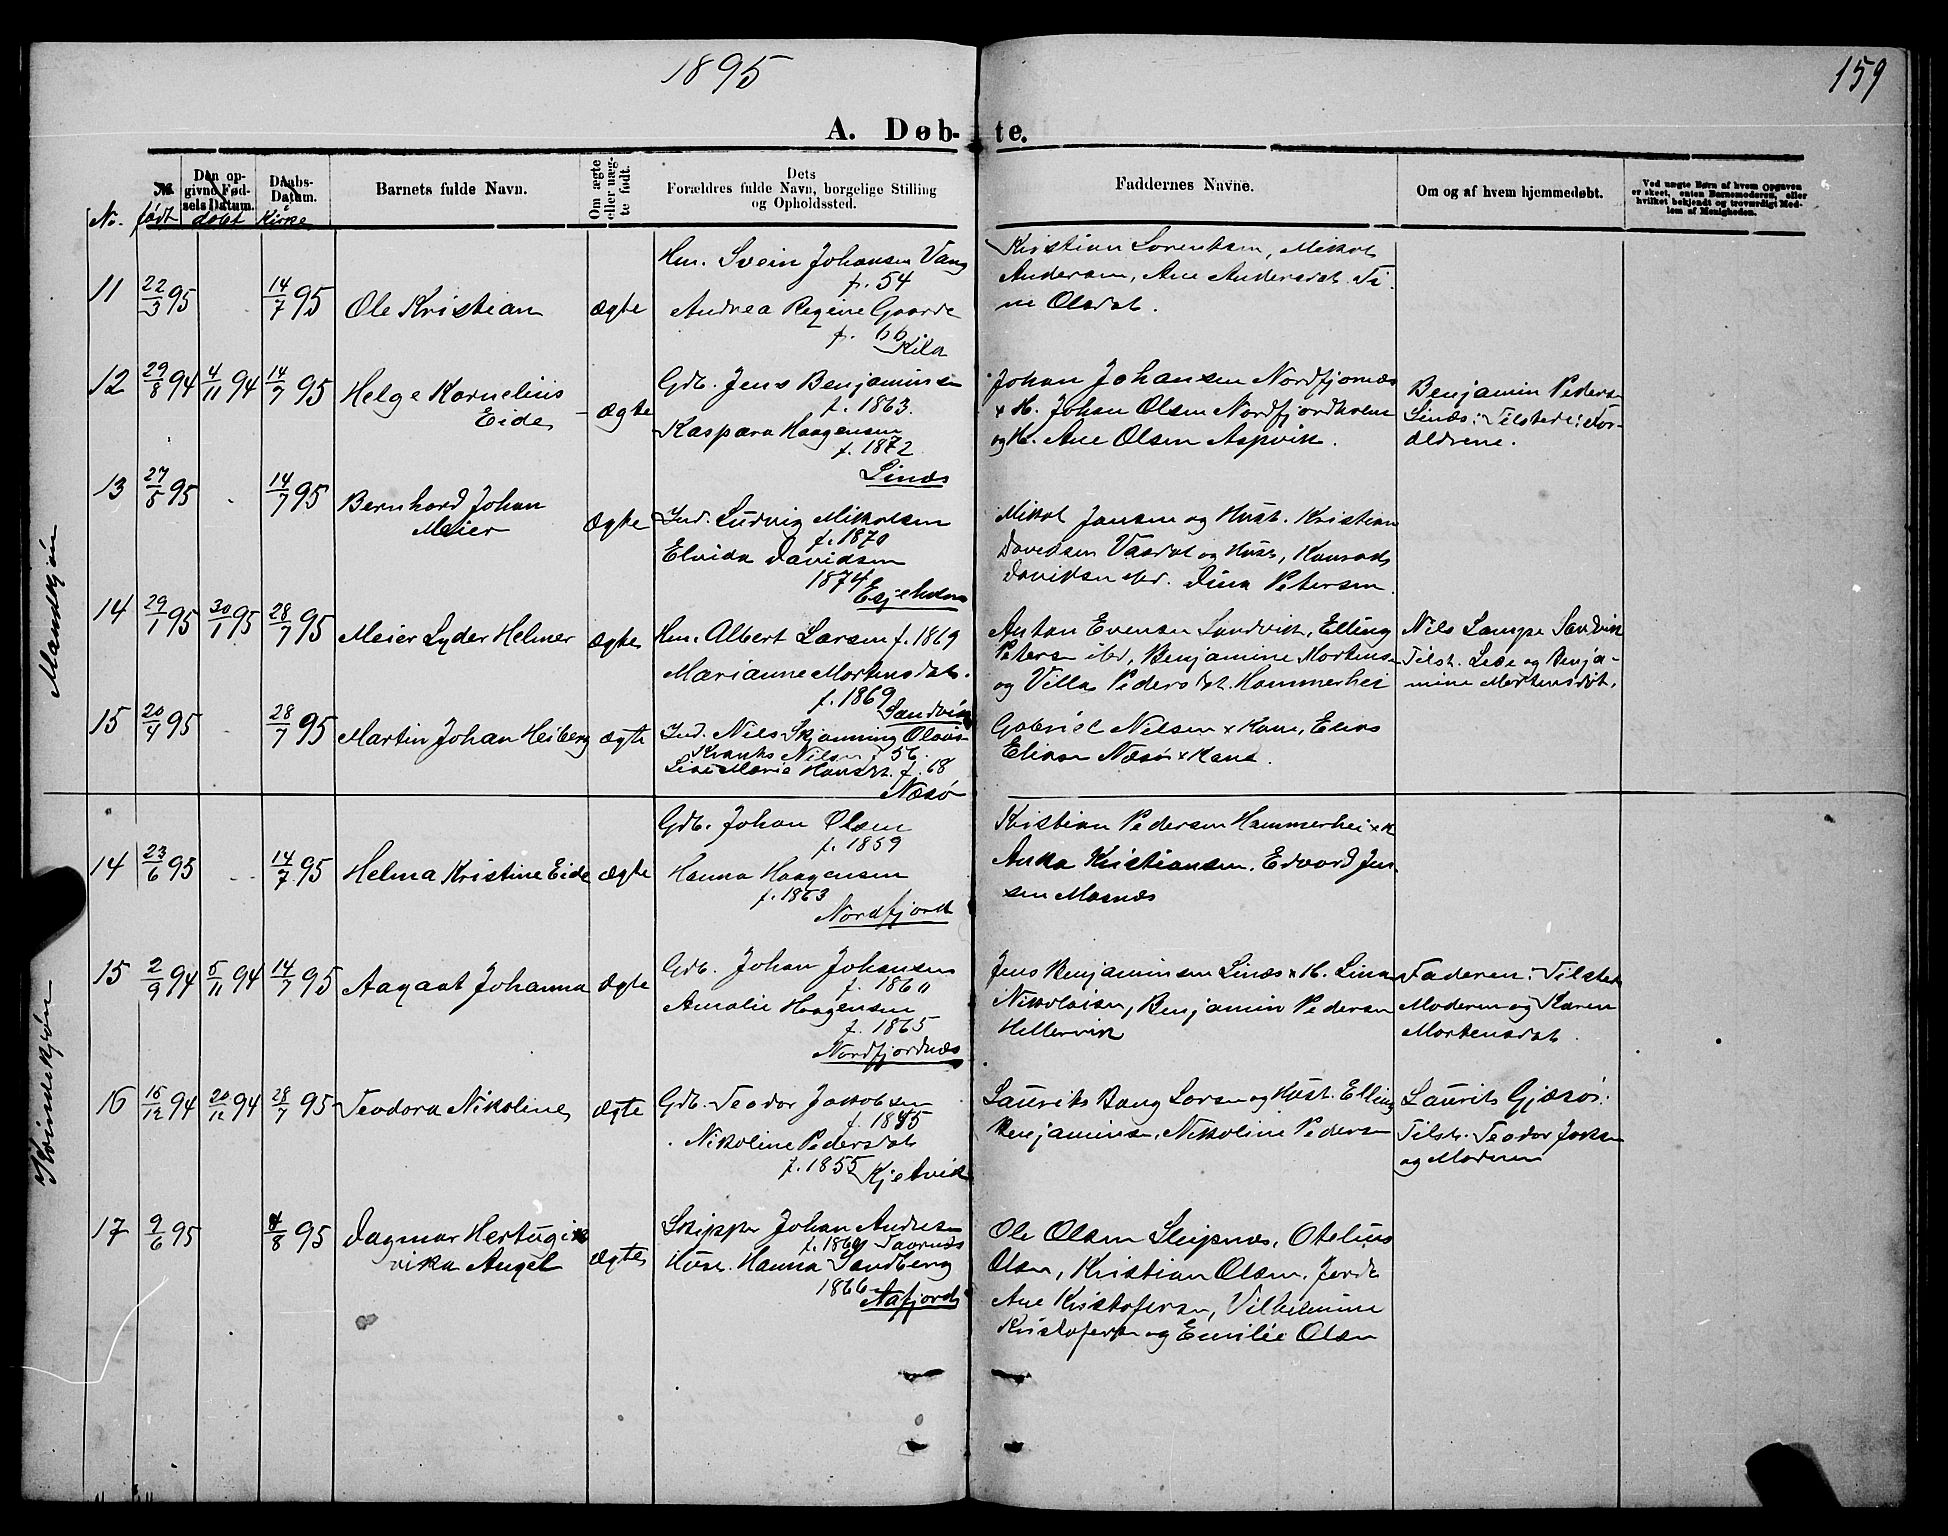 1895
159
A. Døb- te.
№
Den opgivne Fødsels Datum.
Daabs-Datum.
Barnets fulde Navn.
Om ægte eller uægte født.
Dets
Forældres fulde Navn, borgelige Stilling
og Opholdssted.
Faddernes Navne.
Om og af hvem hjemmedøbt.
Ved uægte Børn af hvem Opgaven
er skeet, enten Barnemoderen, eller
hvilket bekjendt og troværdigt Medlem af Menigheden.
No. født døbt i Kirke
Mandkjøn
11 22/3 95 14/7 95 Ole Kristian ægte
Hm. Svein Johansen Vang
f. 54
Andrea Regine Gaarde
f. 66
Kila
Kristian Lorentsen, Mikal
Andersen, Ane Andersdat. Ti-
ne Olsdat.
12 29/8 94 4/11 94 14/7 95 Helge Kornelius
Eide ægte
Gdb. Jens Benjaminsen
f. 1863.
Kaspara Haagensen
f. 1872
Linæs
Johan Johansen Nordfjornæs
+ H. Johan Olsen Nordfjordholm
og H. Ane Olsen Aspvik.
Benjamin Peders
Linæs: Tilstede: For-
ældrene.
13 27/5 95 14/7 95 Bernhard Johan
Meier ægte
Ind. Ludvig Mikalsen
f. 1870
Elvida Davidsen
1874
Mikal Jansen og Hust. Kristian
Davidsen Vasdal og Hust, Konrad
Davidsen ibd. Dina Petersen.
14 29/1 95 30/1 95 28/7 95 Meier Lyder Helmer ægte
Hm. Albert Larsen f. 1869
Marianne Mortensdat.
f. 1869
Sandvik
Anton Evensen Sandvik, Elling
Petersen ibd, Benjamine Mortens-
og Villa Pedersdt. Hammerhei
Nils Lampe Sandvik
Tilst. Lise og Benja-
mine Mortensdat.
15 20/4 95 28/7 95 Martin Johan Heiberg ægte
Ind. Nils Skjanning Olaus
Krantz Nilsen f 56.
Lise Marie Hansdt. f. 68
Næsø
Gabriel Nilsen + Kone, Elias
Eliasen Næsø + Kone.
Kvindekjøn
14 23/6 95 14/7 95 Helma Kristine Eide ægte
Gdb. Johan Olsen
f. 1859
Hanna Haagensen
f. 1863
Nordfjord
Kristian Pedersen Hammerhei + K
Anna Kristiansen. Edvard Jen-
sen Masnæs
15 2/9 94 5/11 94 14/7 95 Aagaat Johanna ægte
Gdb. Johan Johansen
f. 1860
Amalie Haagensen
f. 1865
Nordfjordnæs
Jens Benjaminsen Linæs + H. Lina
Nikolaisen, Benjamin Pedersen
Hellervik
Faderen: Tilsted
Moderen og Karen
Mortensdat.
16 15/12 94 20/12 94 28/7 95 Teodora Nikoline ægte
Gdb. Teodor Jakobsen
f. 1855
Nikoline Pedersdat
f. 1855
Kjelvik
Laurits Bang Larsen og Hust. Elling
Benjaminsen, Nikoline Pedersen
Laurits Gjæsø:
Tilst. Teodor Jakosen
og Moderen
17 9/6 95 4/8 95 Dagmar Hertugi-
vika Angel ægte
Skipper Johan Andresen
f. 1864 Tavrnæs
Hust. Hanna Sandberg
1866
Aafjord
Ole Olsen Sleipnæs, Otelius
Olsen, Kristian Olsen. Jerda
Ane Kristofersen, Vilhelmine
Kristofersen og Emilie Olsen